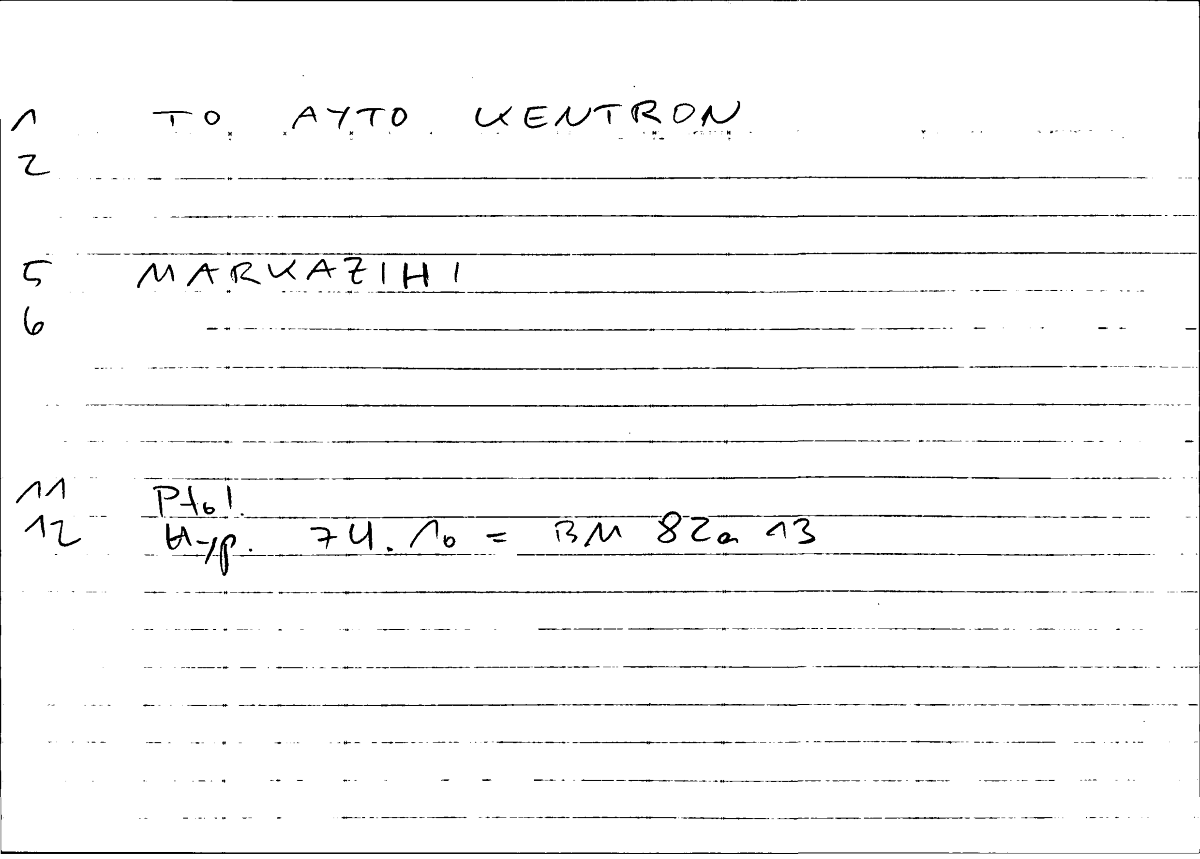 1 TO AYTO KENTRON
2
5 MARKAZIHI
6
11 Ptol.
12 Hyp. 74.10 = BM 82a 13